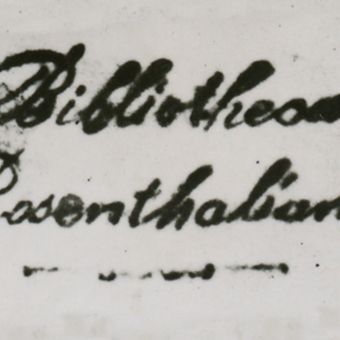 Bibliotheca
Rosenthalian